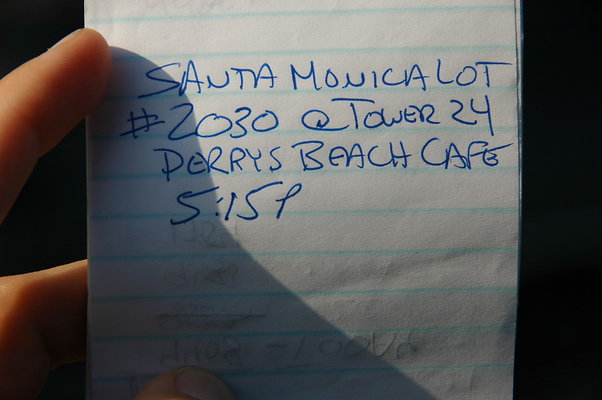 SANTA MONICA LOT
#2030 @ TOWER 24
PERRYS BEACH CAFE
5:15P